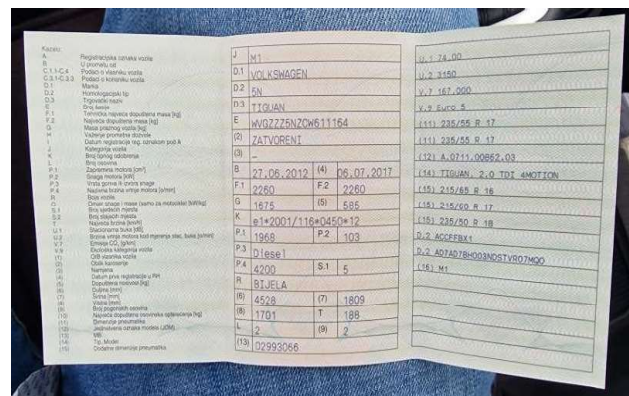 Kazalo:
A Registracijska oznaka vozila
B U prometu od
C.1.1-C.4 Podaci o vlasniku vozila
C.3.1-C.3.3 Podaci o korisniku vozila
D.1 Marka
D.2 Homologacijski tip
D.3 Trgovački naziv
E Broj šasije
F.1 Tehnička najveća dopuštena masa [kg]
F.2 Najveća dopuštena masa [kg]
G Masa praznog vozila [kg]
H Važenje prometne dozvole
I Datum registracije reg. oznakom pod A
J Kategorija vozila
K Broj tipnog odobrenja
L Broj osovina
P.1 Zapremina motora [cm³]
P.2 Snaga motora [kW]
P.3 Vrsta goriva ili izvora snage
P.4 Nazivna brzina vrtnje motora [o/min]
R Boja vozila
S.1 Broj sjedećih mjesta
S.2 Broj stajaćih mjesta
T Najveća brzina [km/h]
U.1 Stacionarna buka [dB]
V.7 Emisija CO₂ [g/km]
V.9 Ekološka kategorija vozila
(1) OIB vlasnika vozila
(2) Oblik karoserije
(3) Namjena
(4) Datum prve registracije u RH
(5) Dopuštena nosivost [kg]
(6) Duljina [mm]
(7) Širina [mm]
(8) Visina [mm]
(9) Broj pogonskih osovina
(11) Dimenzije pneumatika
(12) Jedinstvena oznaka modela (JOM)
(13) MB
(14) Tip, Model
(15) Dodatne dimenzije pneumatika
J M1
D.1 VOLKSWAGEN
D.2 5N
D.3 TIGUAN
E WVGZZZ5NZCW611164
(2) ZATVORENI
(3) –
B 27.06.2012 (4) 06.07.2017
F.1 2260 F.2 2260
G 1675 (5) 585
K e1*2001/116*0450*12
P.1 1968 P.2 103
P.3 Diesel
P.4 4200 S.1 5
R BIJELA
(6) 4528 (7) 1809
(8) 1701 T 188
L 2 (9) 2
(13) 02993066
U.1 74,00
U.2 3150
V.7 167,000
V.9 Euro 5
(11) 235/55 R 17
(11) 235/55 R 17
(12) A.0711.00862.03
(14) TIGUAN, 2.0 TDI 4MOTION
(15) 215/65 R 16
(15) 215/60 R 17
(15) 235/50 R 18
D.2 ACCFFBX1
D.2 AD7AD7BH003NDSTVR07MQO
(16) M1